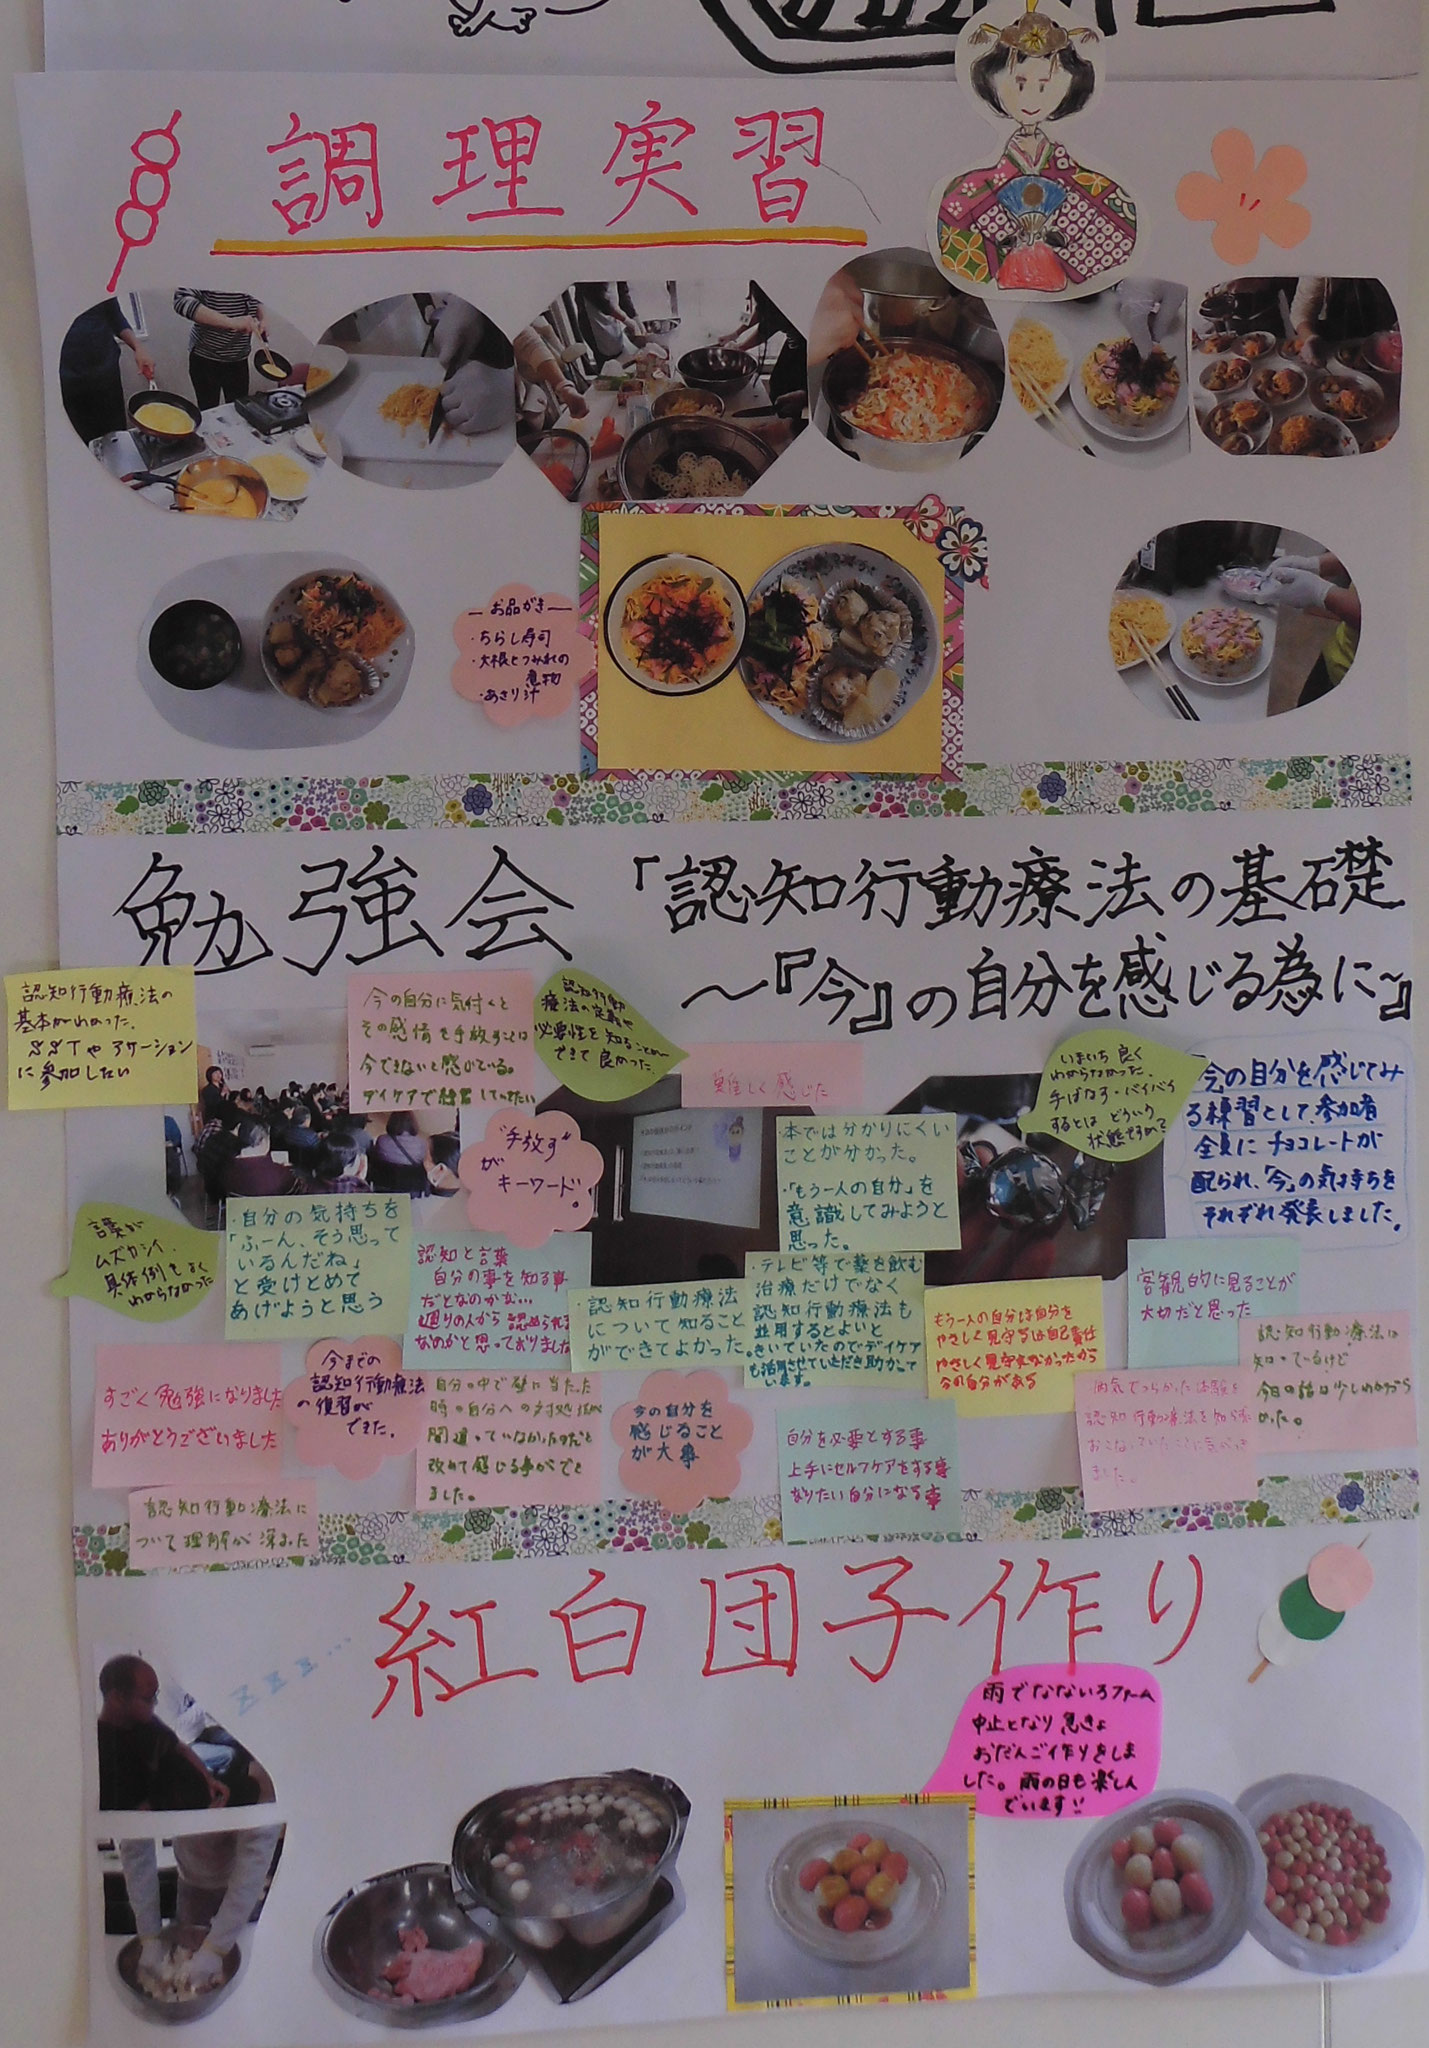 調理実習
お品がき
・ちらし寿司
・大根とつみれの
煮物
・あさり汁
勉強会「認知行動療法の基礎
～『今』の自分を感じる為に～」
認知行動療法の
基本がわかった。
SSTやアサーション
に参加したい
今の自分に気付くと
その感情を手放すことは
今できないと感がている。
デイケアで練習してゆきたい
認知行動
療法の定義や
必要性を知ることが
できて良かった。
難しく感じた
いまいち良く
わからなかった。
手ばなす・バイバイ
するとはどういう
状態ですかって
「今」の自分を感じてみ
る練習として、参加者
全員にチョコレートが
配られ、「今」の気持ちを
それぞれ発表しました。
"手放す"
が
キーワード。
・本では分かりにくい
ことが分かった。
・「もう一人の自分」を
意識してみようと
思った。
言葉が
ムズカシイ、
具体例もよく
わからなかった
・自分の気持ちを
「ふーん、そう思って
いるんだね」
と受けとめて
あげようと思う
認知と言葉
自分の事を知る事
だとなのかな…
通りの人から認められる
なのかと思っておりました
・認知行動療法
について知ること
ができてよかった。
・テレビ等で薬を飲む
治療だけでなく
認知行動療法も
並用するとよいと
きいていたのでデイケア
も活用させていただき助かって
います。
もう一人の自分は自分を
やさしく見守るは自己責任
やさしく見守れなかったから
今の自分がある
客観的に見ることが
大切だと思った
認知行動療法は
知っているけど
今日の話は少しわかづら
かった。
すごく勉強になりました
ありがとうございました
今までの
認知行動療法
の復習が
できた。
自分の中で壁に当たった
時の自分への対処法が
間違っていなかったのだと
改めて感じる事ができ
ました。
今の自分を
感じること
が大事
自分を必要とする事
上手にセルフケアをする事
なりたい自分になる事
病気でつらかった体験を
認知行動療法を知らずに
おこなっていたことに気がつき
ました。
認知行動療法に
ついて理解が深まった
紅白団子作り
zzz…
雨でなないろファーム
中止となり急きょ
おだんご作りをしま
した。雨の日も楽しん
でいます!!